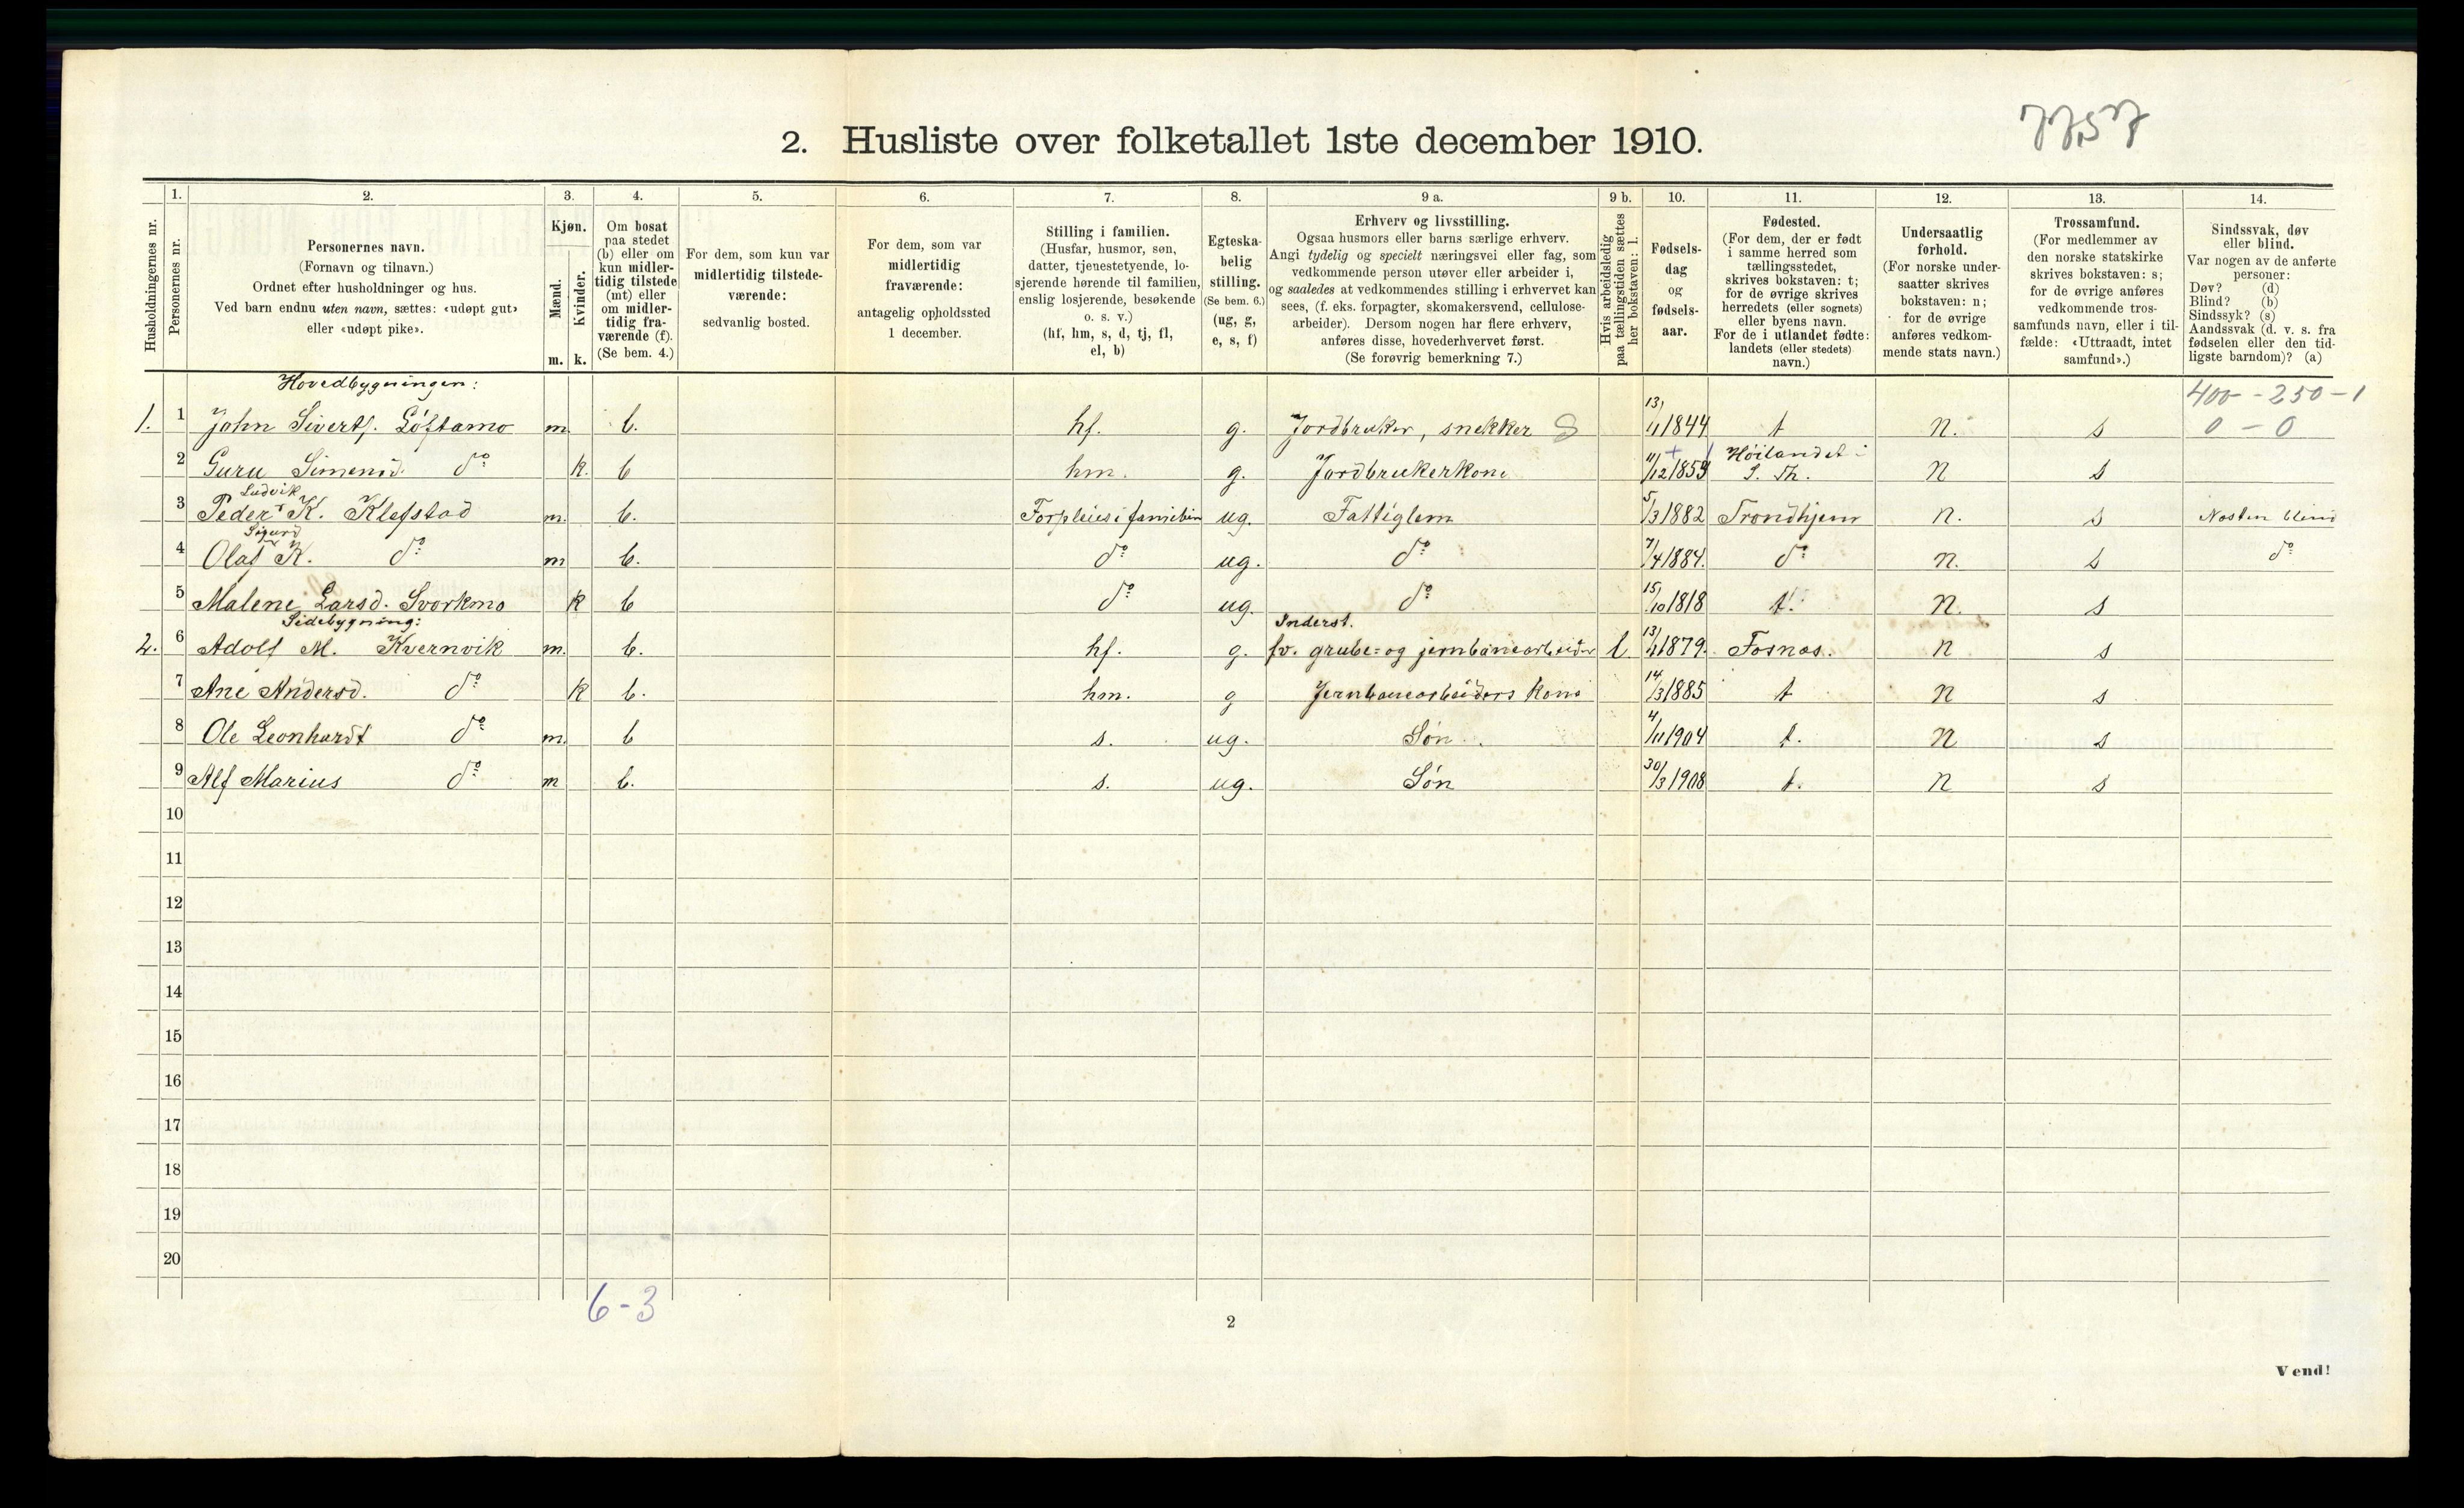 2. Husliste over folketallet 1ste december 1910.
7757
Husholdningernes nr.
1.
Personernes nr.
2.
Personernes navn.
(Fornavn og tilnavn.)
Ordnet efter husholdninger og hus.
Ved barn endnu uten navn, sættes: «udøpt gut»
eller «udøpt pike».
3.
Kjøn.
Mænd.
Kvinder.
m. k.
4.
Om bosat
paa stedet
(b) eller om
kun midler-
tidig tilstede
(mt) eller
om midler-
tidig fra-
værende (f).
(Se bem. 4.)
5.
For dem, som kun var
midlertidig tilstede-
værende:
sedvanlig bosted.
6.
For dem, som var
midlertidig
fraværende:
antagelig opholdssted
1 december.
7.
Stilling i familien.
(Husfar, husmor, søn,
datter, tjenestetyende, lo-
sjerende hørende til familien,
enslig losjerende, besøkende
o. s. v.)
(hf, hm, s, d, tj, fl,
el, b)
8.
Egteska-
belig
stilling.
(Se bem. 6.)
(ug, g,
e, s, f)
9 a.
Erhverv og livsstilling.
Ogsaa husmors eller barns særlige erhverv.
Angi tydelig og specielt næringsvei eller fag, som
vedkommende person utøver eller arbeider i,
og saaledes at vedkommendes stilling i erhvervet kan
sees, (f. eks. forpagter, skomakersvend, cellulose-
arbeider). Dersom nogen har flere erhverv,
anføres disse, hovederhvervet først.
(Se forøvrig bemerkning 7.)
9 b.
Hvis arbeidsledig
paa tællingstiden sættes
her bokstaven: l.
10.
Fødsels-
dag
og
fødsels-
aar.
11.
Fødested.
(For dem, der er født
i samme herred som
tællingsstedet,
skrives bokstaven: t;
for de øvrige skrives
herredets (eller sognets)
eller byens navn.
For de i utlandet fødte:
landets (eller stedets)
navn.)
12.
Undersaatlig
forhold.
(For norske under-
saatter skrives
bokstaven: n;
for de øvrige
anføres vedkom-
mende stats navn.)
13.
Trossamfund.
(For medlemmer av
den norske statskirke
skrives bokstaven: s;
for de øvrige anføres
vedkommende tros-
samfunds navn, eller i til-
fælde: «Uttraadt, intet
samfund».)
14.
Sindssvak, døv
eller blind.
Var nogen av de anførte
personer:
Døv? (d)
Blind? (b)
Sindssyk? (s)
Aandssvak (d. v. s. fra
fødselen eller den tid-
ligste barndom)? (a)
Hovedbygningen:
400 - 250 - 1
1. 1 John Sivertf. Løftamo m. b. hf. g. Jordbruker, snekker 13/11 1844 t n. s 0 - 0
2 Guru Simensd. do k. b hm. g. Jordbrukerkone 11/12 1859 Høilandet i S. Th. n s
Ludvik
3 Peder K. Klefstad m. b. Forpleies i familien ug. Fattiglem 5/3 1882 Trondhjem n. s Næsten blind
Sigurd
4 Olaf K. do m b. do ug. do 7/4 1884. do n. s do
5 Malene Larsd. Svorkmo k b do ug. do 15/10 1818 t. n. s
Sidebygning:
Inderst.
2. 6 Adolf M. Kvernvik m. b. hf. g. fv. grube- og jernbanearbeider l 13/11 1879. Fosnæs. n s
7 Ane Andersd. do k b. hm. g Jernbanearbeiders kone 14/3 1885 t n s
8 Ole Leonhardt do m. b s. ug. Søn 4/11 1904 t. n s
9 Alf Marius do m b. s. ug. Søn 30/3 1908 t. n s
10
11
12
13
14
15
16
17
18
19
20
6-3
2
Vend!